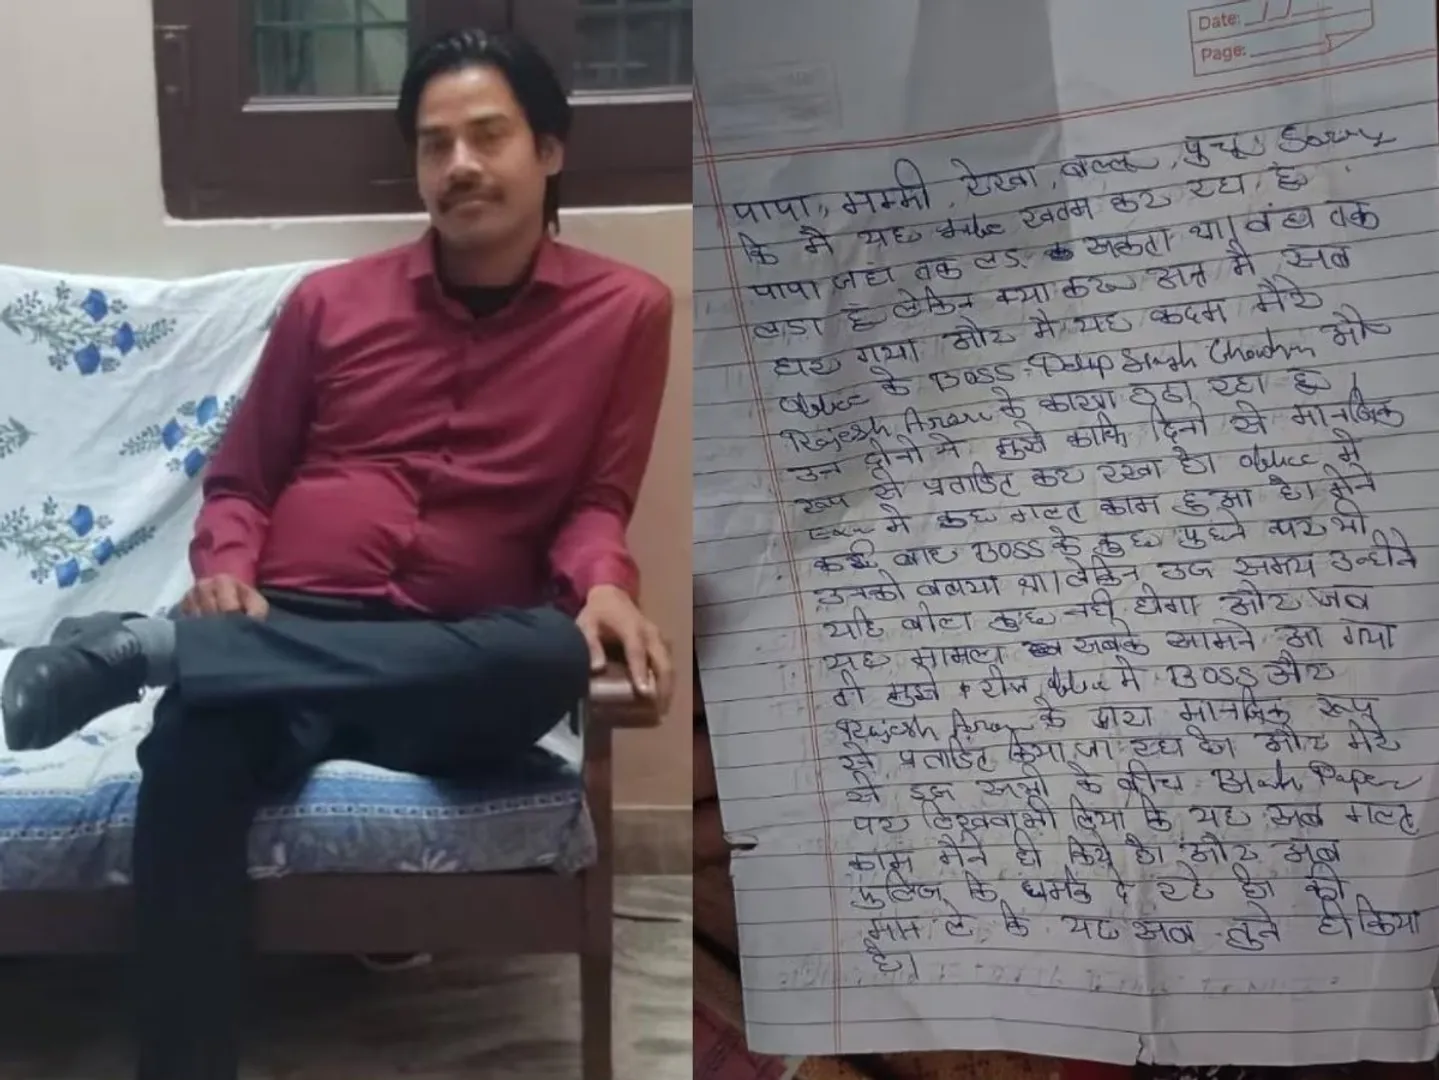 Date:
Page:
पापा, मम्मी, रेखा, बल्लू, पुचू Sorry
कि मै यह life खत्म कर रहा हूं
पापा जहा तक लड़ सकता था। वंहा तक
लडा हूं लेकिन क्या करू अन्त मै सब
हार गया और मै यह कदम मेरे
office के BOSS Dilip Singh Choudhary और
Rajesh के कारण उठा रहा हूं।
उन दोनो ने मुझे काफि दिनो से मानसिक
रूप से प्रताडित कर रखा है। office मे
मे कुछ गलत काम हुआ है। मैने
कई बार BOSS के कुछ पुछने पर भी
उनको बताया था। लेकिन उस समय उन्होने
यहि बोला कुछ नही होगा और जब
यह मामला सबके सामने आ गया
तो मुझे रोज office मे BOSS और
Rajesh के द्वारा मानसिक रूप
से प्रताडित किया जा रहा है। और मेरे
से इन सभी के बीच Paper
पर लिखवा भी लिया कि यह सब गलत
काम मैने ही किये है। और अब
पुलिस कि धमकि दे रहे है। की
मान ले कि यह सब तुने ही किया
है।